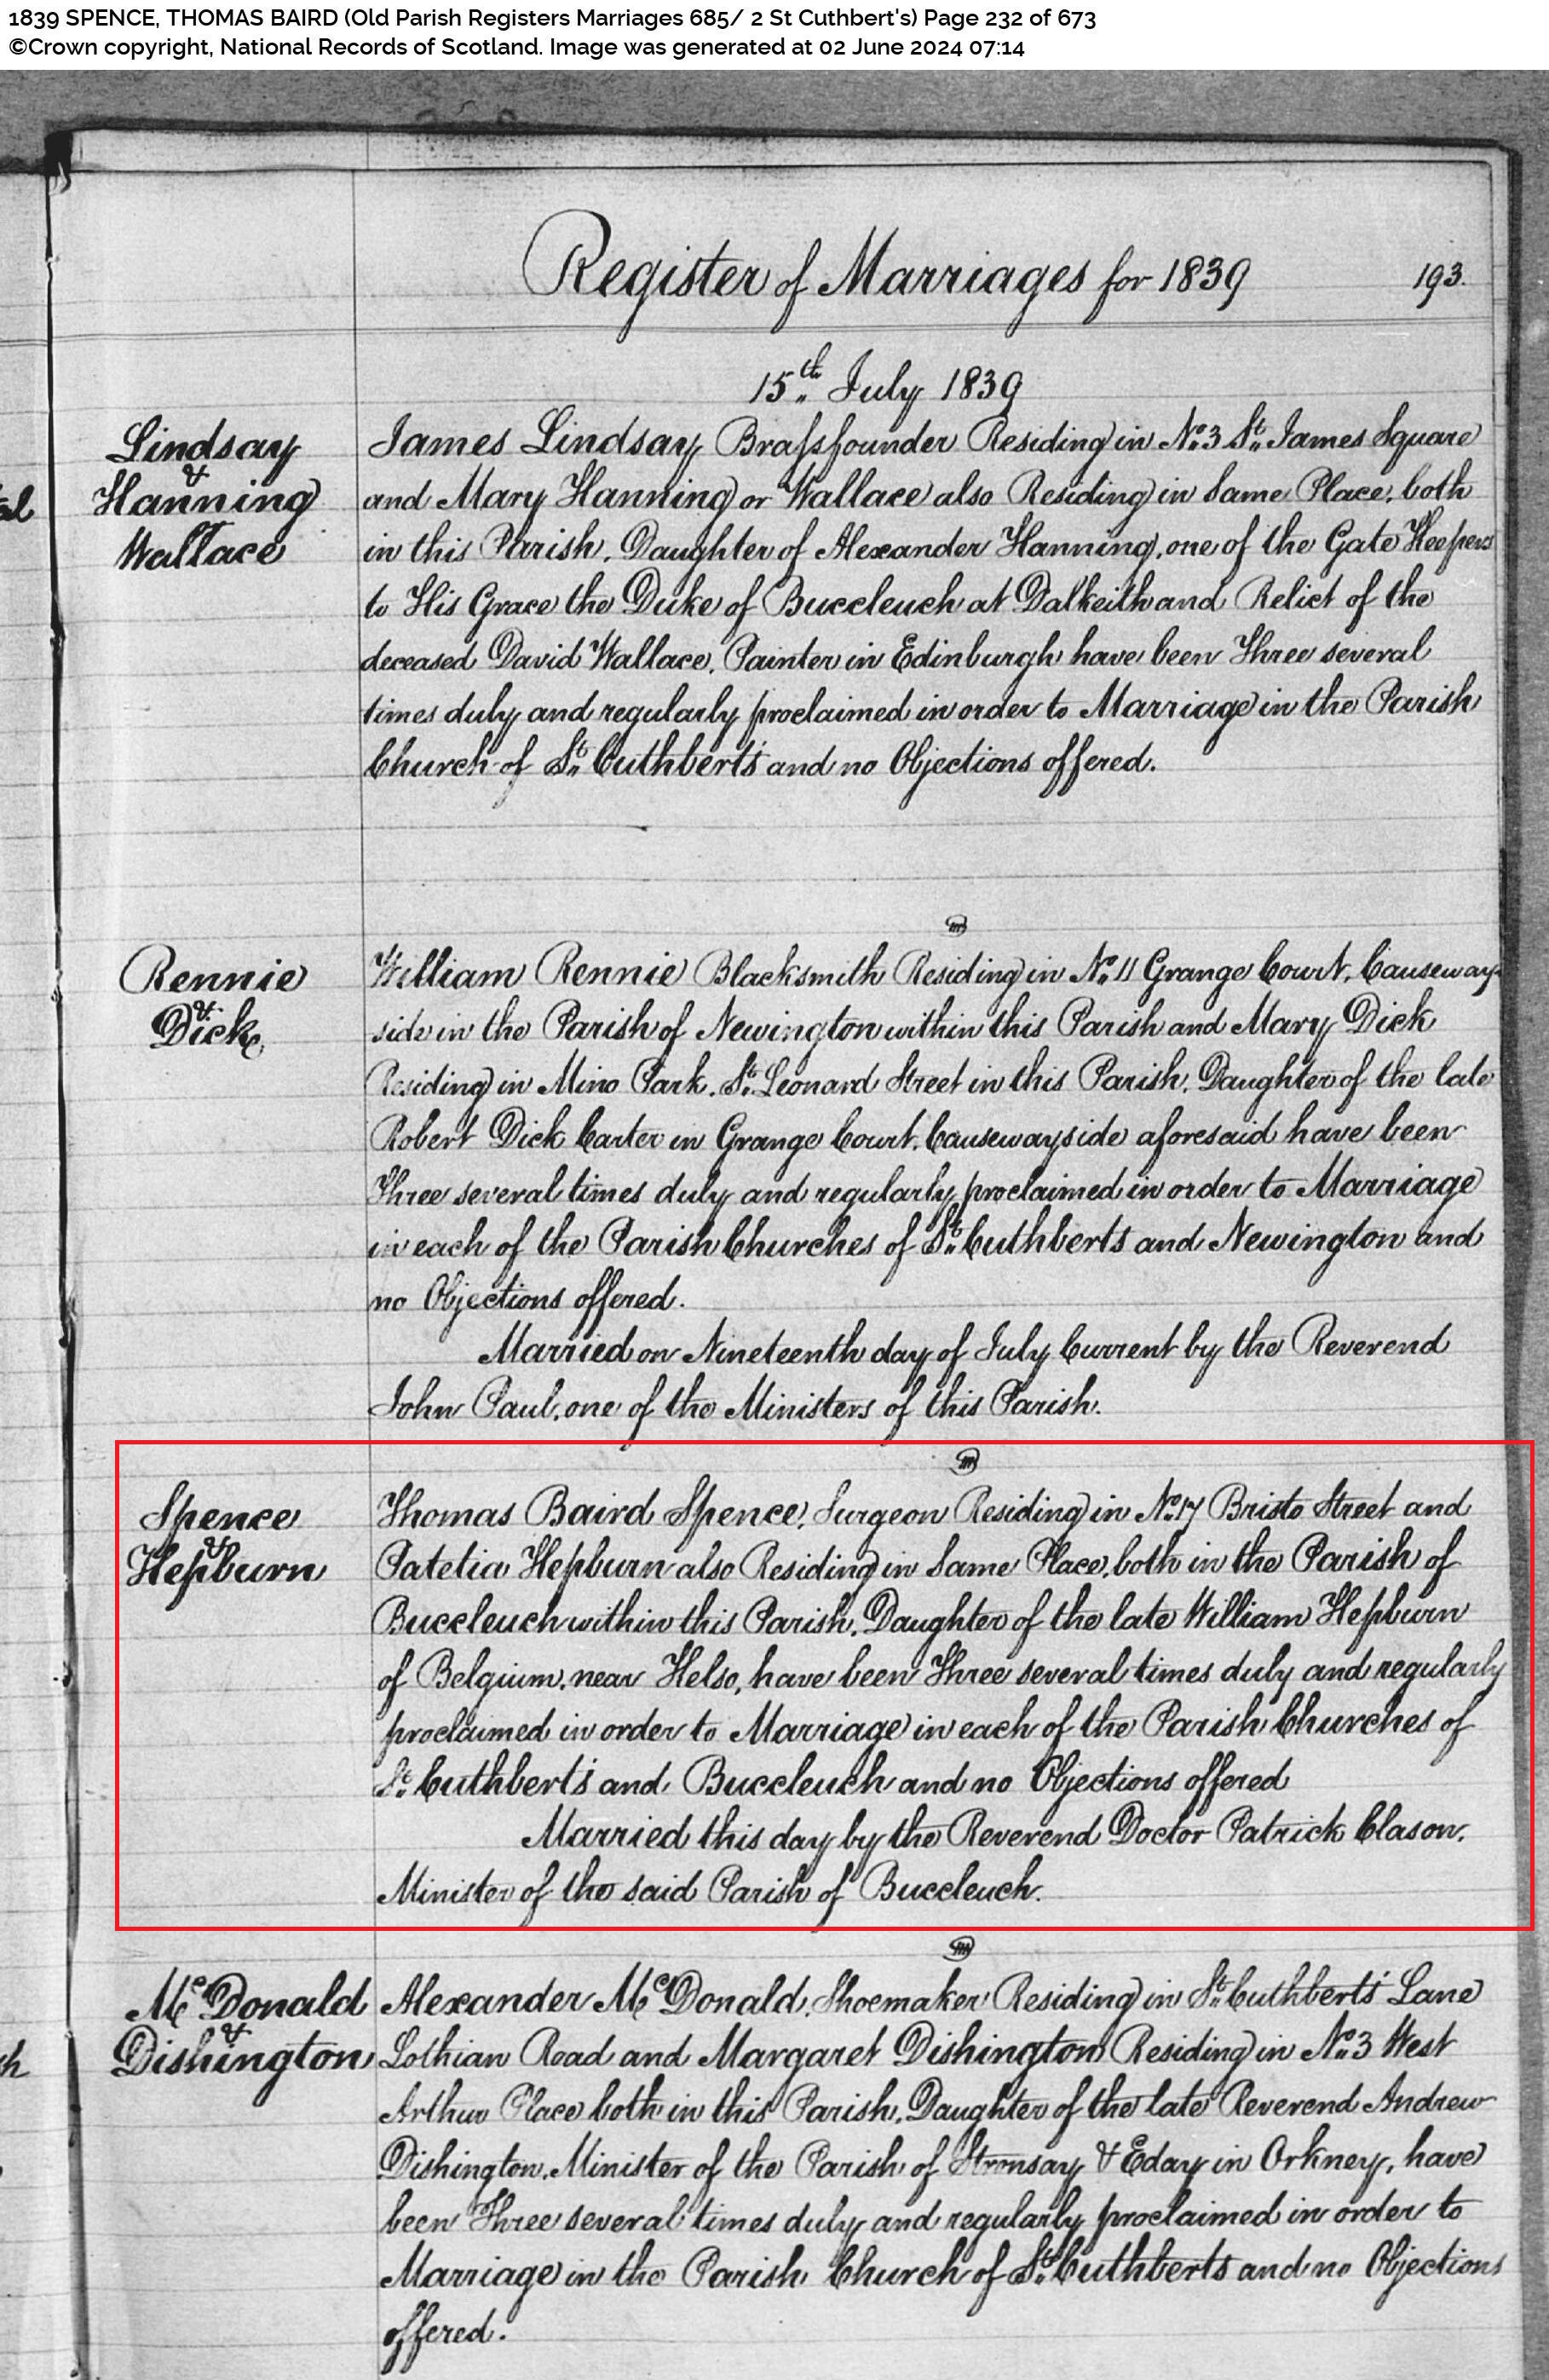 1839 SPENCE, THOMAS BAIRD (Old Parish Registers Marriages 685/ 2 St Cuthbert's) Page 232 of 673
©Crown copyright, National Records of Scotland. Image was generated at 02 June 2024 07:14
Register of Marriages for 1839 193.
15th July 1839
Lindsay
&
Hanning
Wallace
James Lindsay Brassfounder Residing in No. 3 St. James Square
and Mary Hanning or Wallace also Residing in Same Place, both
in this Parish, Daughter of Alexander Hanning, one of the Gate Keepers
to His Grace the Duke of Buccleuch at Dalkeith and Relict of the
deceased David Wallace, Painter in Edinburgh have been Three several
times duly and regularly proclaimed in order to Marriage in the Parish
Church of St. Cuthbert's and no Objections offered.
Rennie
&
Dick
William Rennie Blacksmith Residing in No. 11 Grange Court, Causeway
side in the Parish of Newington within this Parish and Mary Dick
Residing in Mino Park, St. Leonard Street in this Parish, Daughter of the late
Robert Dick Carter in Grange Court, Causewayside aforesaid have been
Three several times duly and regularly proclaimed in order to Marriage
in each of the Parish Churches of St. Cuthberts and Newington and
no Objections offered.
Married on Nineteenth day of July Current by the Reverend
John Paul, one of the Ministers of this Parish.
Spence
&
Hepburn
Thomas Baird Spence, Surgeon Residing in No. 17 Bristo Street and
Patetia Hepburn also Residing in Same Place, both in the Parish of
Buccleuch within this Parish, Daughter of the late William Hepburn
of Belgium, near Kelso, have been Three several times duly and regularly
proclaimed in order to Marriage in each of the Parish Churches of
St. Cuthbert's and Buccleuch and no Objections offered
Married this day by the Reverend Doctor Patrick Clason,
Minister of the said Parish of Buccleuch.
McDonald
&
Dishington
Alexander McDonald, Shoemaker Residing in St. Cuthbert's Lane
Lothian Road and Margaret Dishington Residing in No. 3 West
Arthur Place both in this Parish, Daughter of the late Reverend Andrew
Dishington, Minister of the Parish of Stronsay & Eday in Orkney, have
been Three several times duly and regularly proclaimed in order to
Marriage in the Parish Church of St. Cuthberts and no Objections
offered.